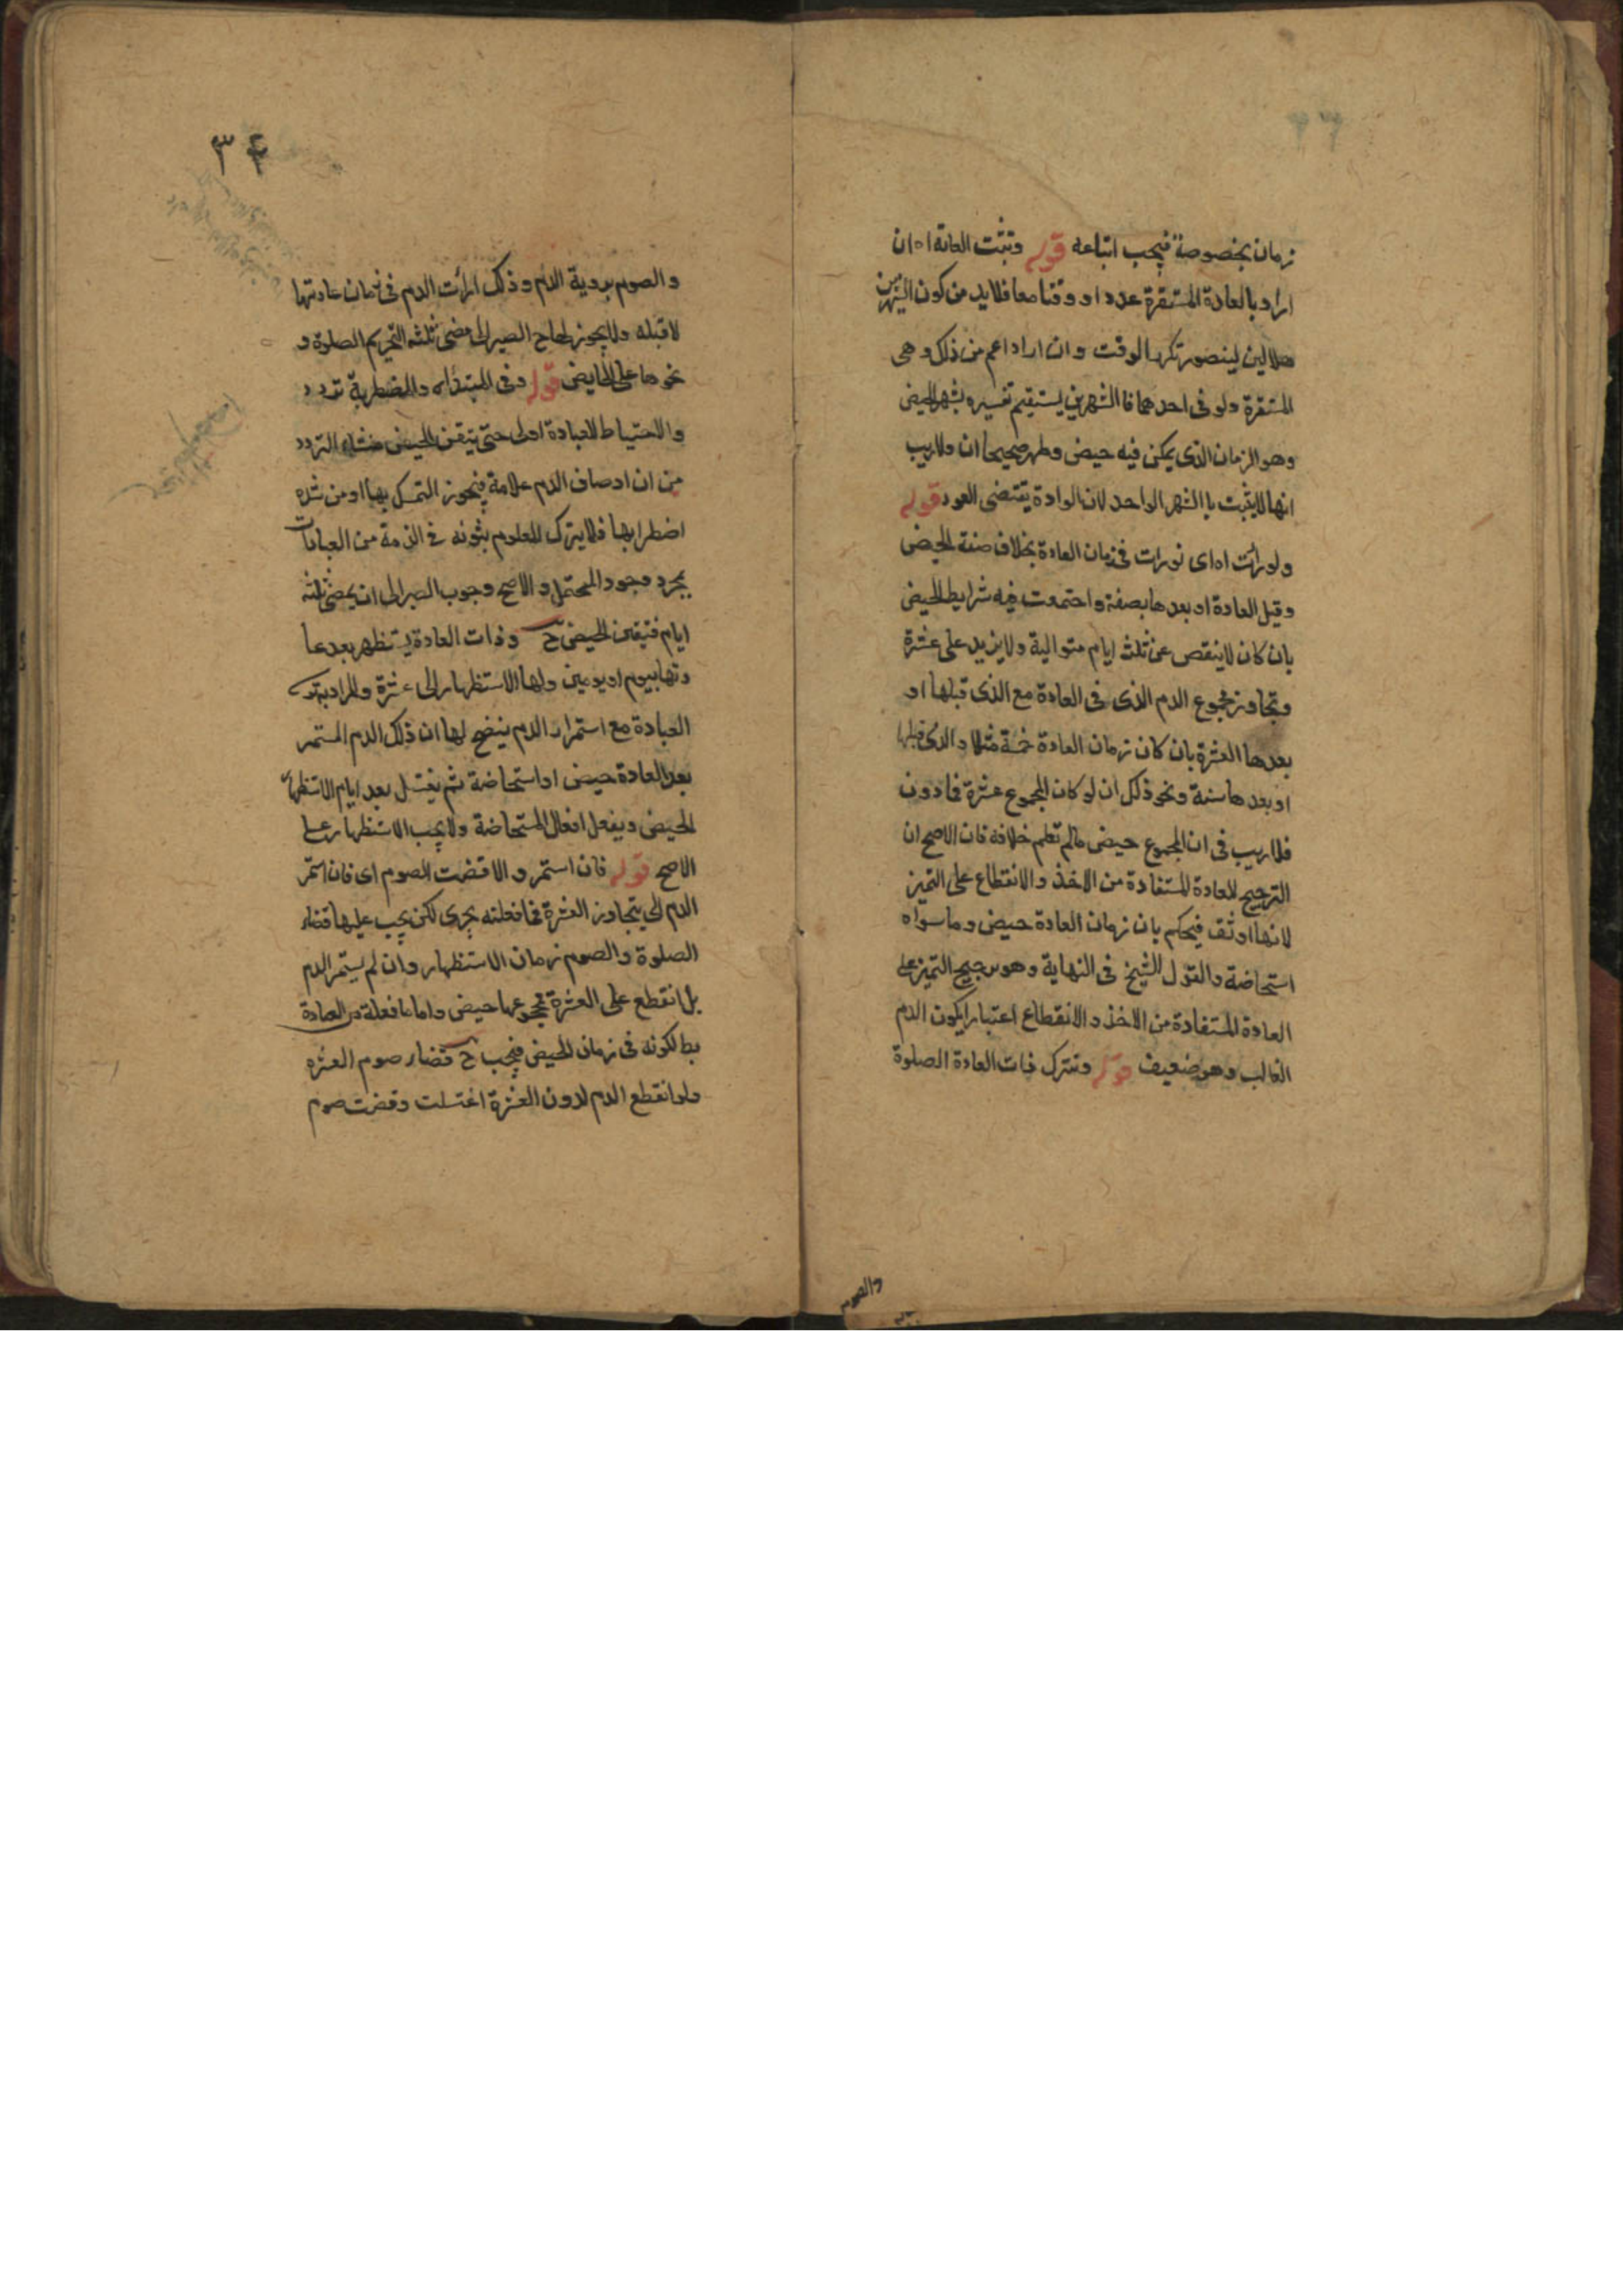 زمان بخصوصة فيجب اتباعه قوله وتثبت العادة اه ان
اراد بالعادة المستقرة عددا و وقتا معا فلابد من كون الشهرين
هلالين ليتصور تكرر الوقت وان اراد اعم من ذلك وهى
المستقرة ولو فى احدهما فا الشهرين يستقيم تفسيره بشهر الحيض
وهو الزمان الذى يمكن فيه حيض وطهر صحيحان ولاريب
انها لايثبت با الشهر الواحد لان الوادة يقتضى العود قوله
ولو رأت اه اى لو رات فى زمان العادة بخلاف صفة الحيض
وقبل العادة او بعدها بصفة واجتمعت فيه شرايط الحيض
بان كان لاينقص عن ثلث ايام متوالية ولايزيد على عشرة
وتجاوز مجموع الدم الذى فى العادة مع الذى قبلها او
بعدها العشرة بان كان زمان العادة خمسة مثلا والذى قبلها
او بعدها ستة ونحو ذلك ان لو كان المجموع عشرة فما دون
فلا ريب فى ان المجموع حيض مالم تعلم خلافه فان الاصح ان
الترجيح للعادة المستفادة من الاخذ والانقطاع على التميز
لانها اوثق فيحكم بان زمان العادة حيض وما سواه
استحاضة والقول الشيخ فى النهاية وهو ترجيح التميز على
العادة المستفادة من الاخذ والانقطاع اعتبارا بكون الدم
الغالب وهو ضعيف قوله وتترك ذات العادة الصلوة
والصوم
٣٤
والصوم بروية الدم وذلك اذا رأت الدم فى زمان عادتها
لا قبله ولايجوز الصبر الى مضى ثلثه التحريم الصلوة و
نحوها على الحايض قوله وفى المبتداه والمضطربة تردد
والاحتياط للعبادة اولى حتى يتيقن الحيض منشاء التردد
من ان اوصاف الدم علامة فيجوز التمسك بها او من شده
اضطرابها فلايترك المعلوم بثوته فى الذمة من العبادات
بمجرد وجود المحتمل والاصح وجوب الصبر الى ان يمضى ثلثه
ايام فتيقن الحيض ح وذات العادة يستظهر بعد عا
دتها بيوم او يومين ولها الاستظهار الى عشرة والمراد به ترك
العبادة مع استمرار الدم ينضح لها ان ذلك الدم المستمر
بعد العادة حيض او استحاضة ثم يغتسل بعد ايام الاستظهار
الحيض ويفعل افعال المستحاضة ولايجب الاستظهار على
الاصح قوله فان استمر و الا قضت الصوم اى فان استمر
الدم الى يتجاوز العشرة فما فعلته يجزى لكن يجب عليها قضاء
الصلوة والصوم زمان الاستظهار وان لم يستمر الدم
بل انقطع على العشرة فمجموعها حيض واما ما فعلة من العبادة
بط لكونه فى زمان الحيض فيجب ح قضاء صوم العشره
ولو انقطع الدم لدون العشرة اغتسلت وقضت صوم